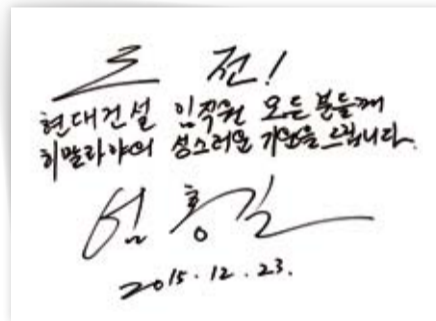 도 전!
현대건설 임직원 모든 분들께
히말라야의 성스러운 기운을 드립니다.
엄홍길
2015.12.23.